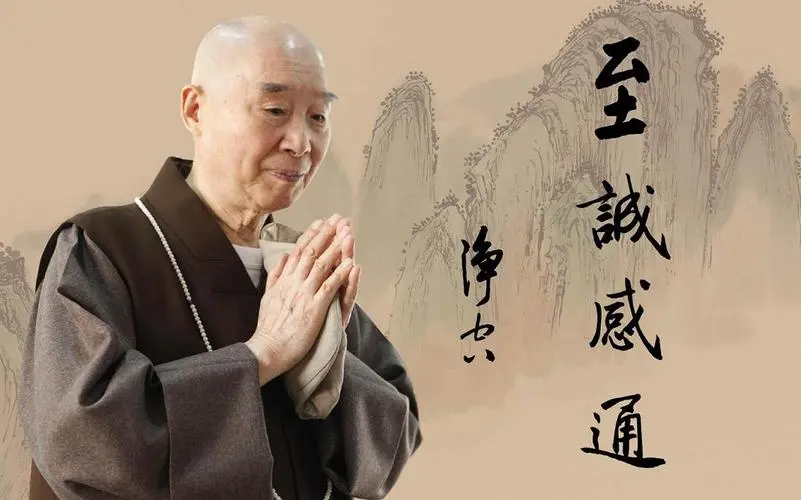 至誠感通
淨空